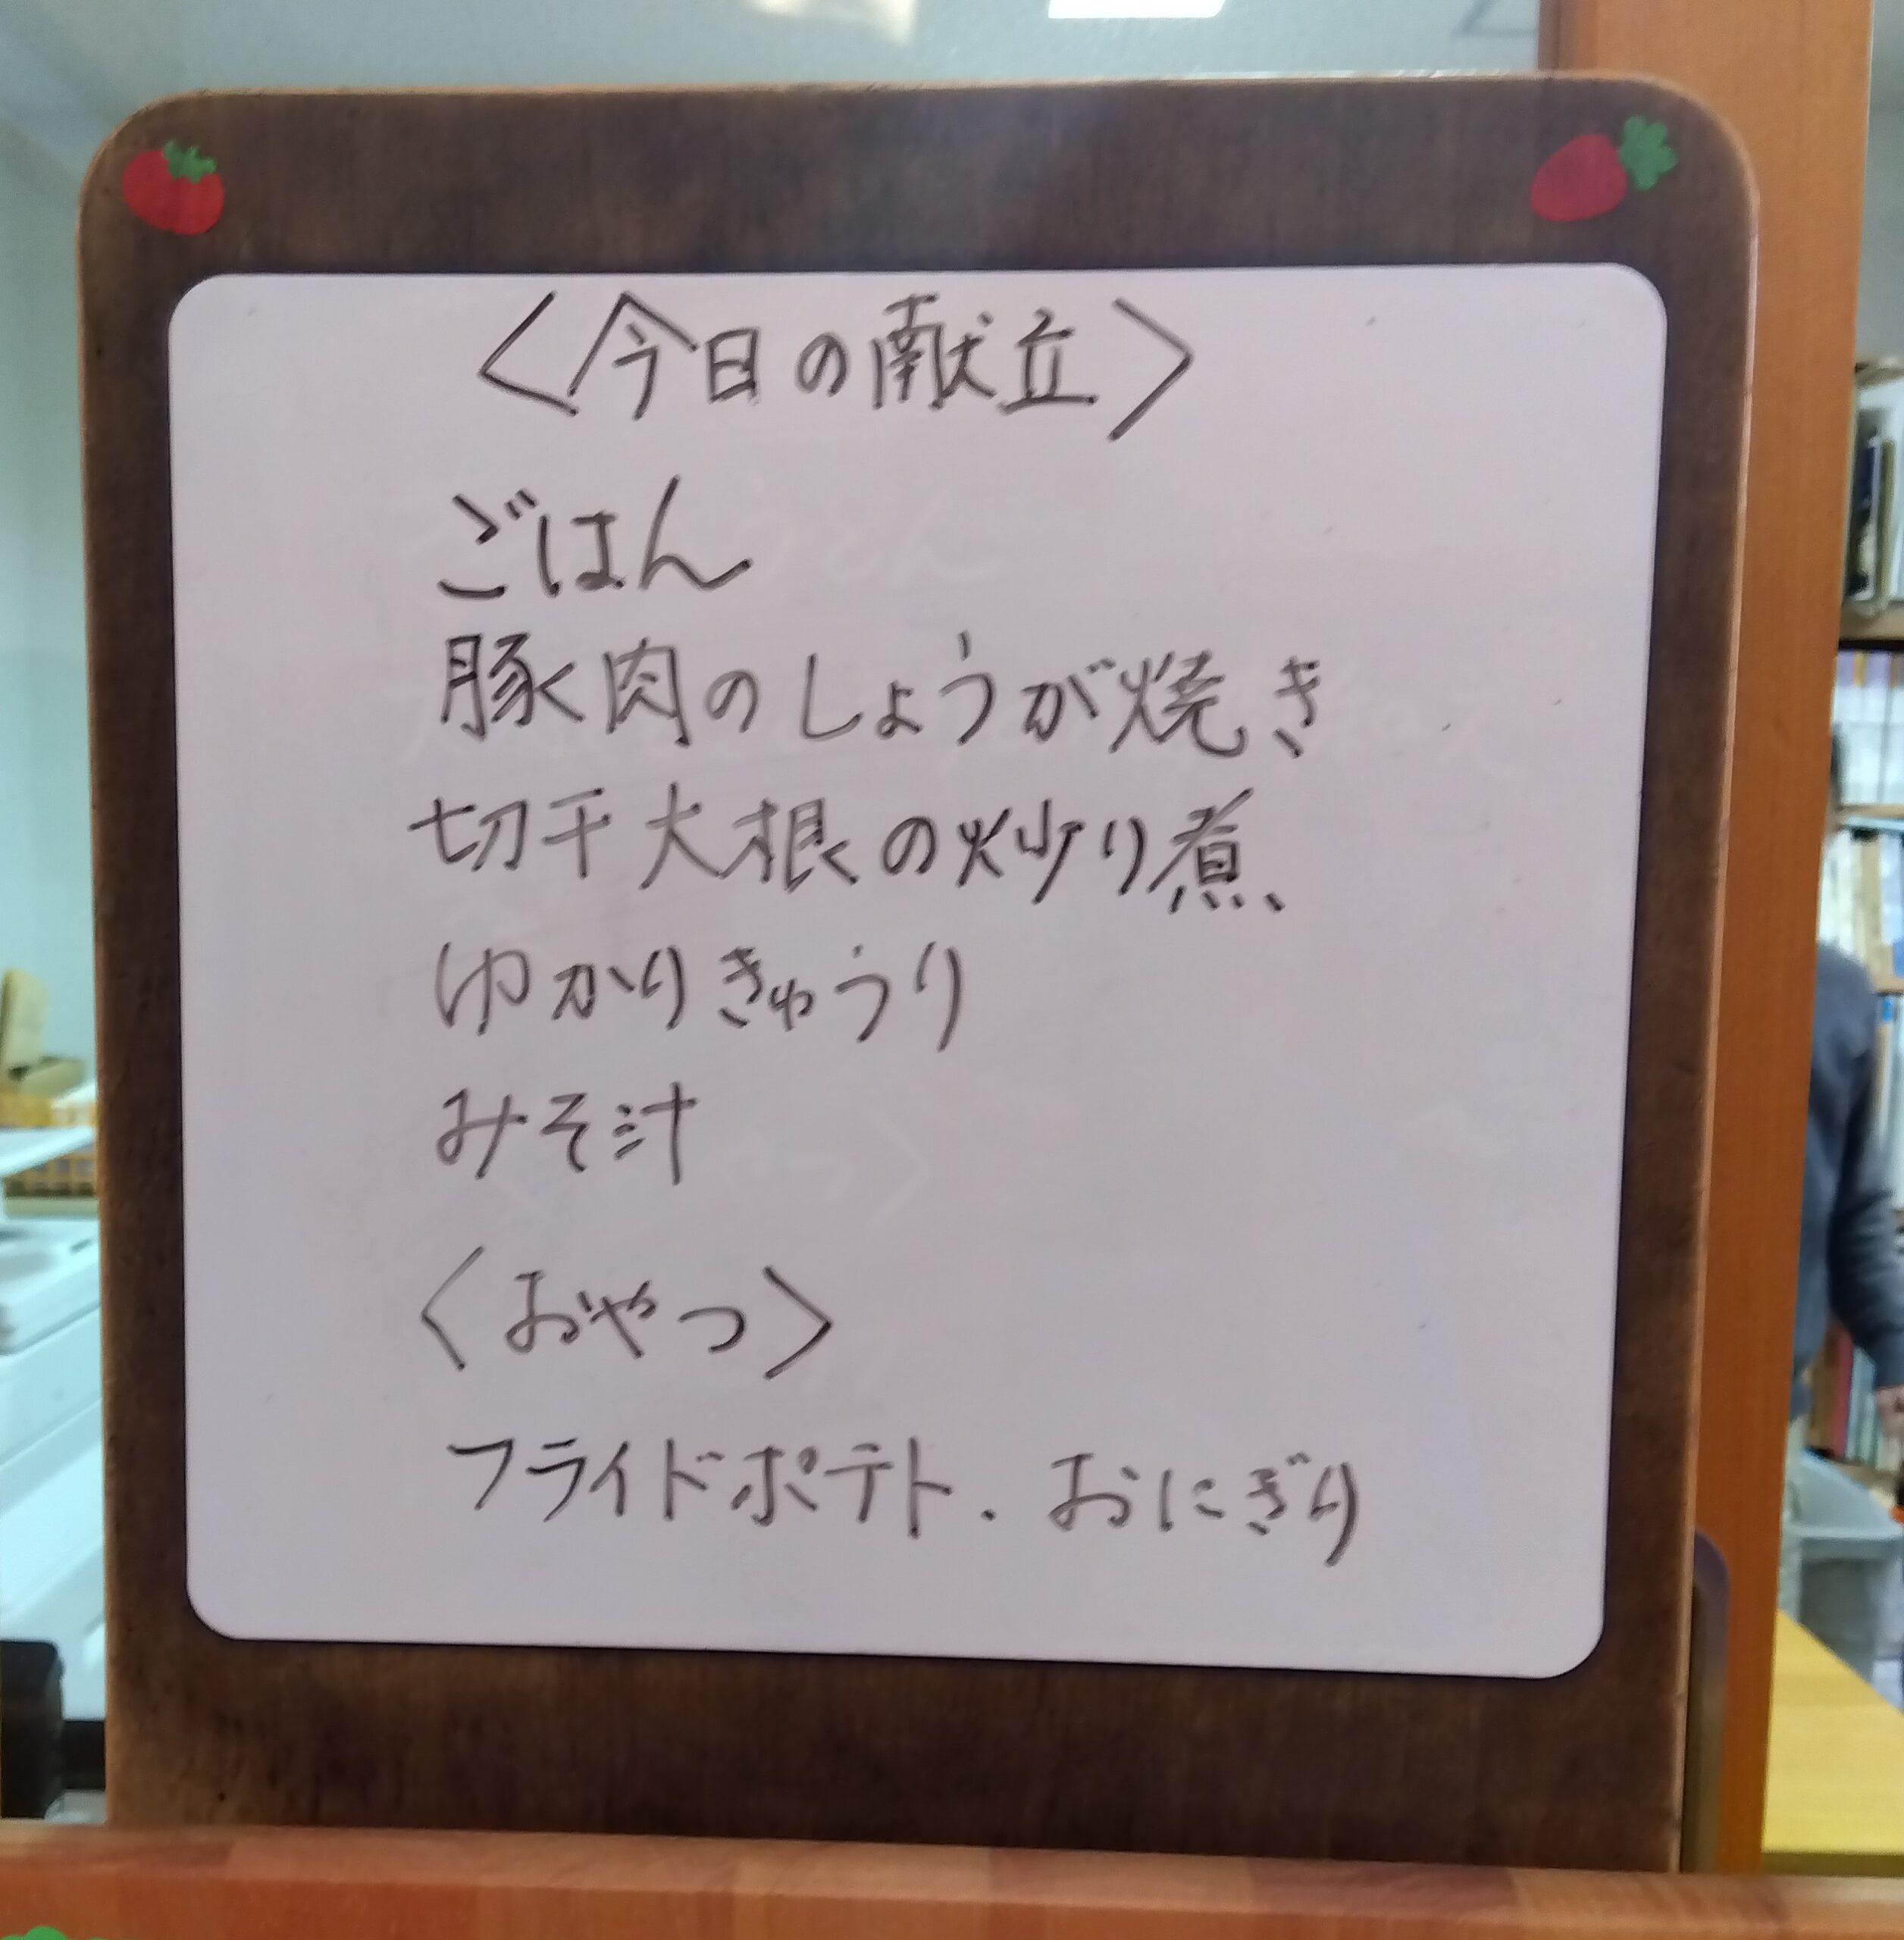 〈今日の献立〉
ごはん
豚肉のしょうが焼き
切干大根の炒り煮
ゆかりきゅうり
みそ汁
〈おやつ〉
フライドポテト.おにぎり